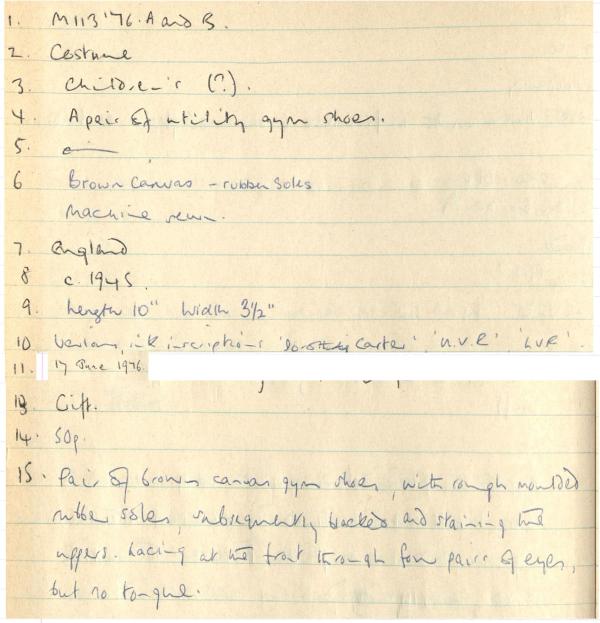 1. M113'76. A and B.
2. Costume
3. Children's (?).
4. A pair of utility gym shoes.
5. —
6 Brown canvas - rubber soles
Machine sewn.
7. England
8 c. 1945.
9. Length 10" Width 3½"
10 Various ink inscriptions Carter', 'U.V.R' 'LVR'.
11. 17 June 1976.
13. Gift.
14. 50p.
15. Pair of brown canvas gym shoes, with rough moulded
rubber soles, subsequently and staining the
uppers. Lacing at the front through four pairs of eyes,
but no tongue.